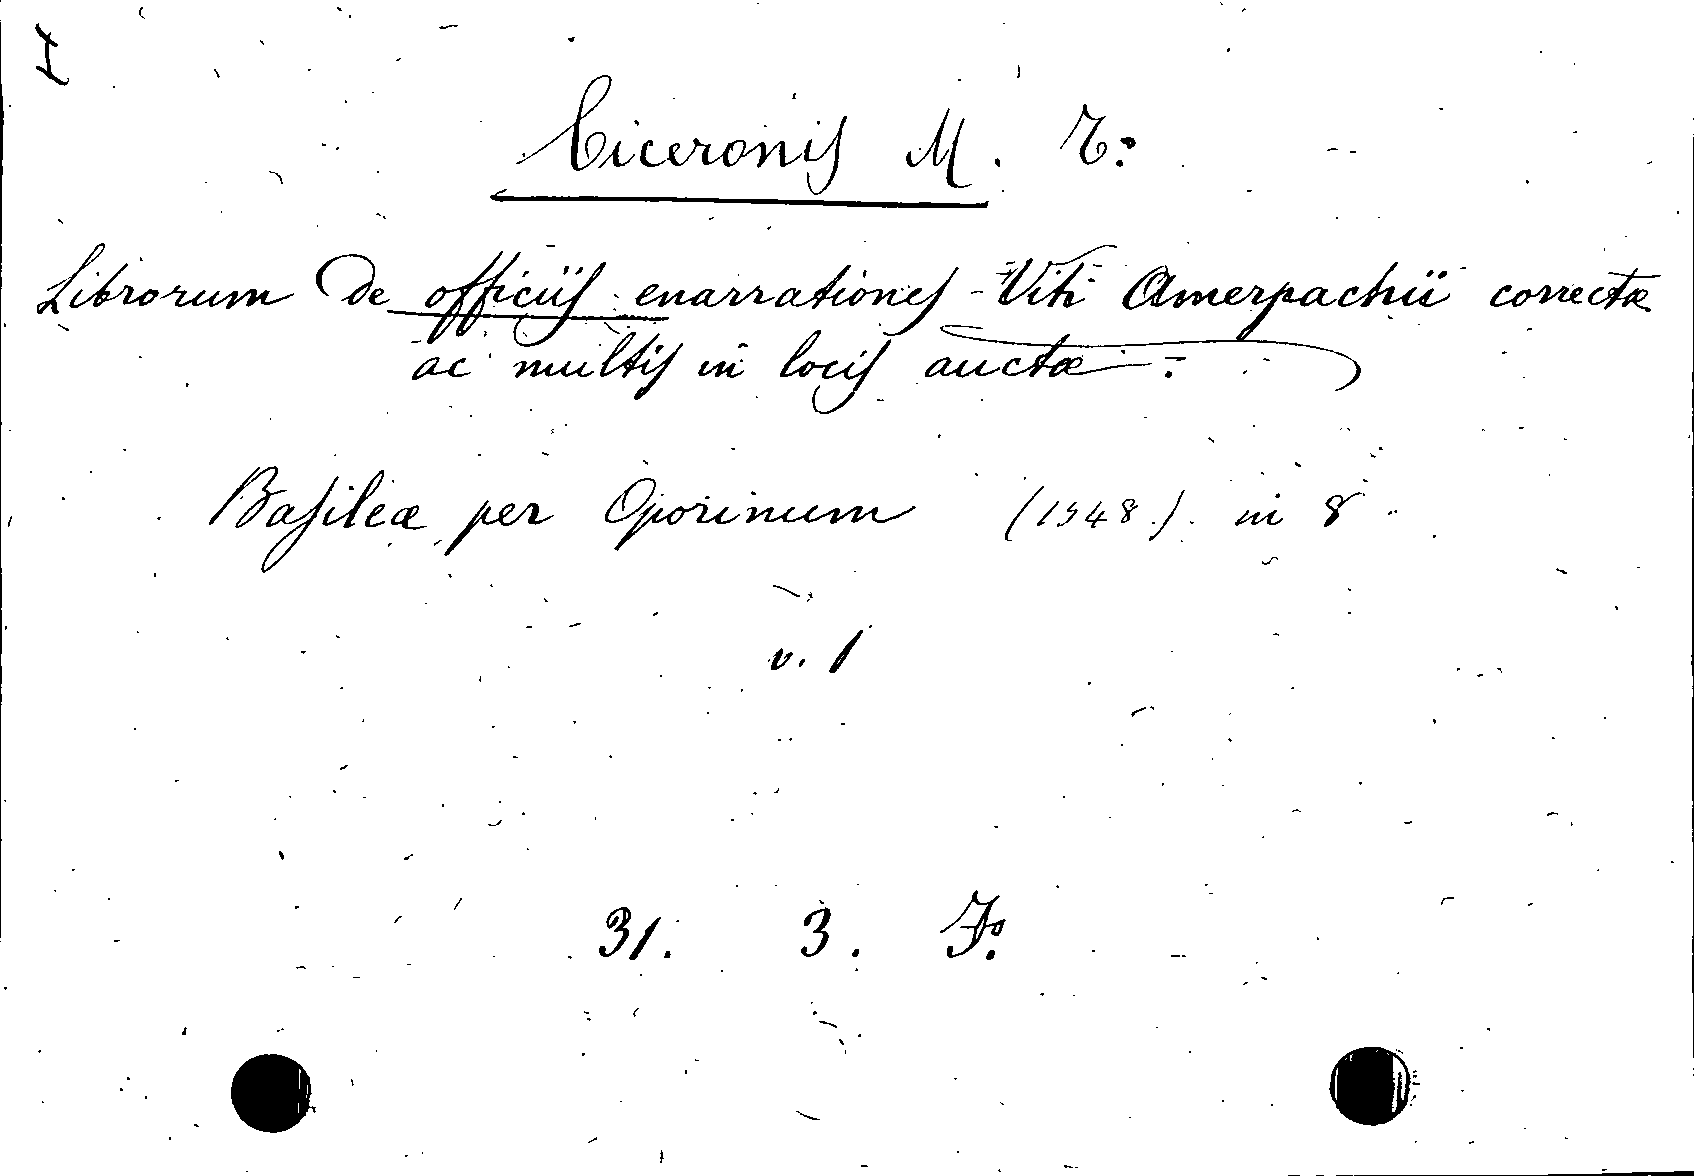 I
Ciceronis M. T:
Librorum De officiis enarrationes Viti Amerpachii correctæ
ac multis in locis auctæ.
Basileæ per Oporinum (1548.) in 8
v. 1
31. 3. F: